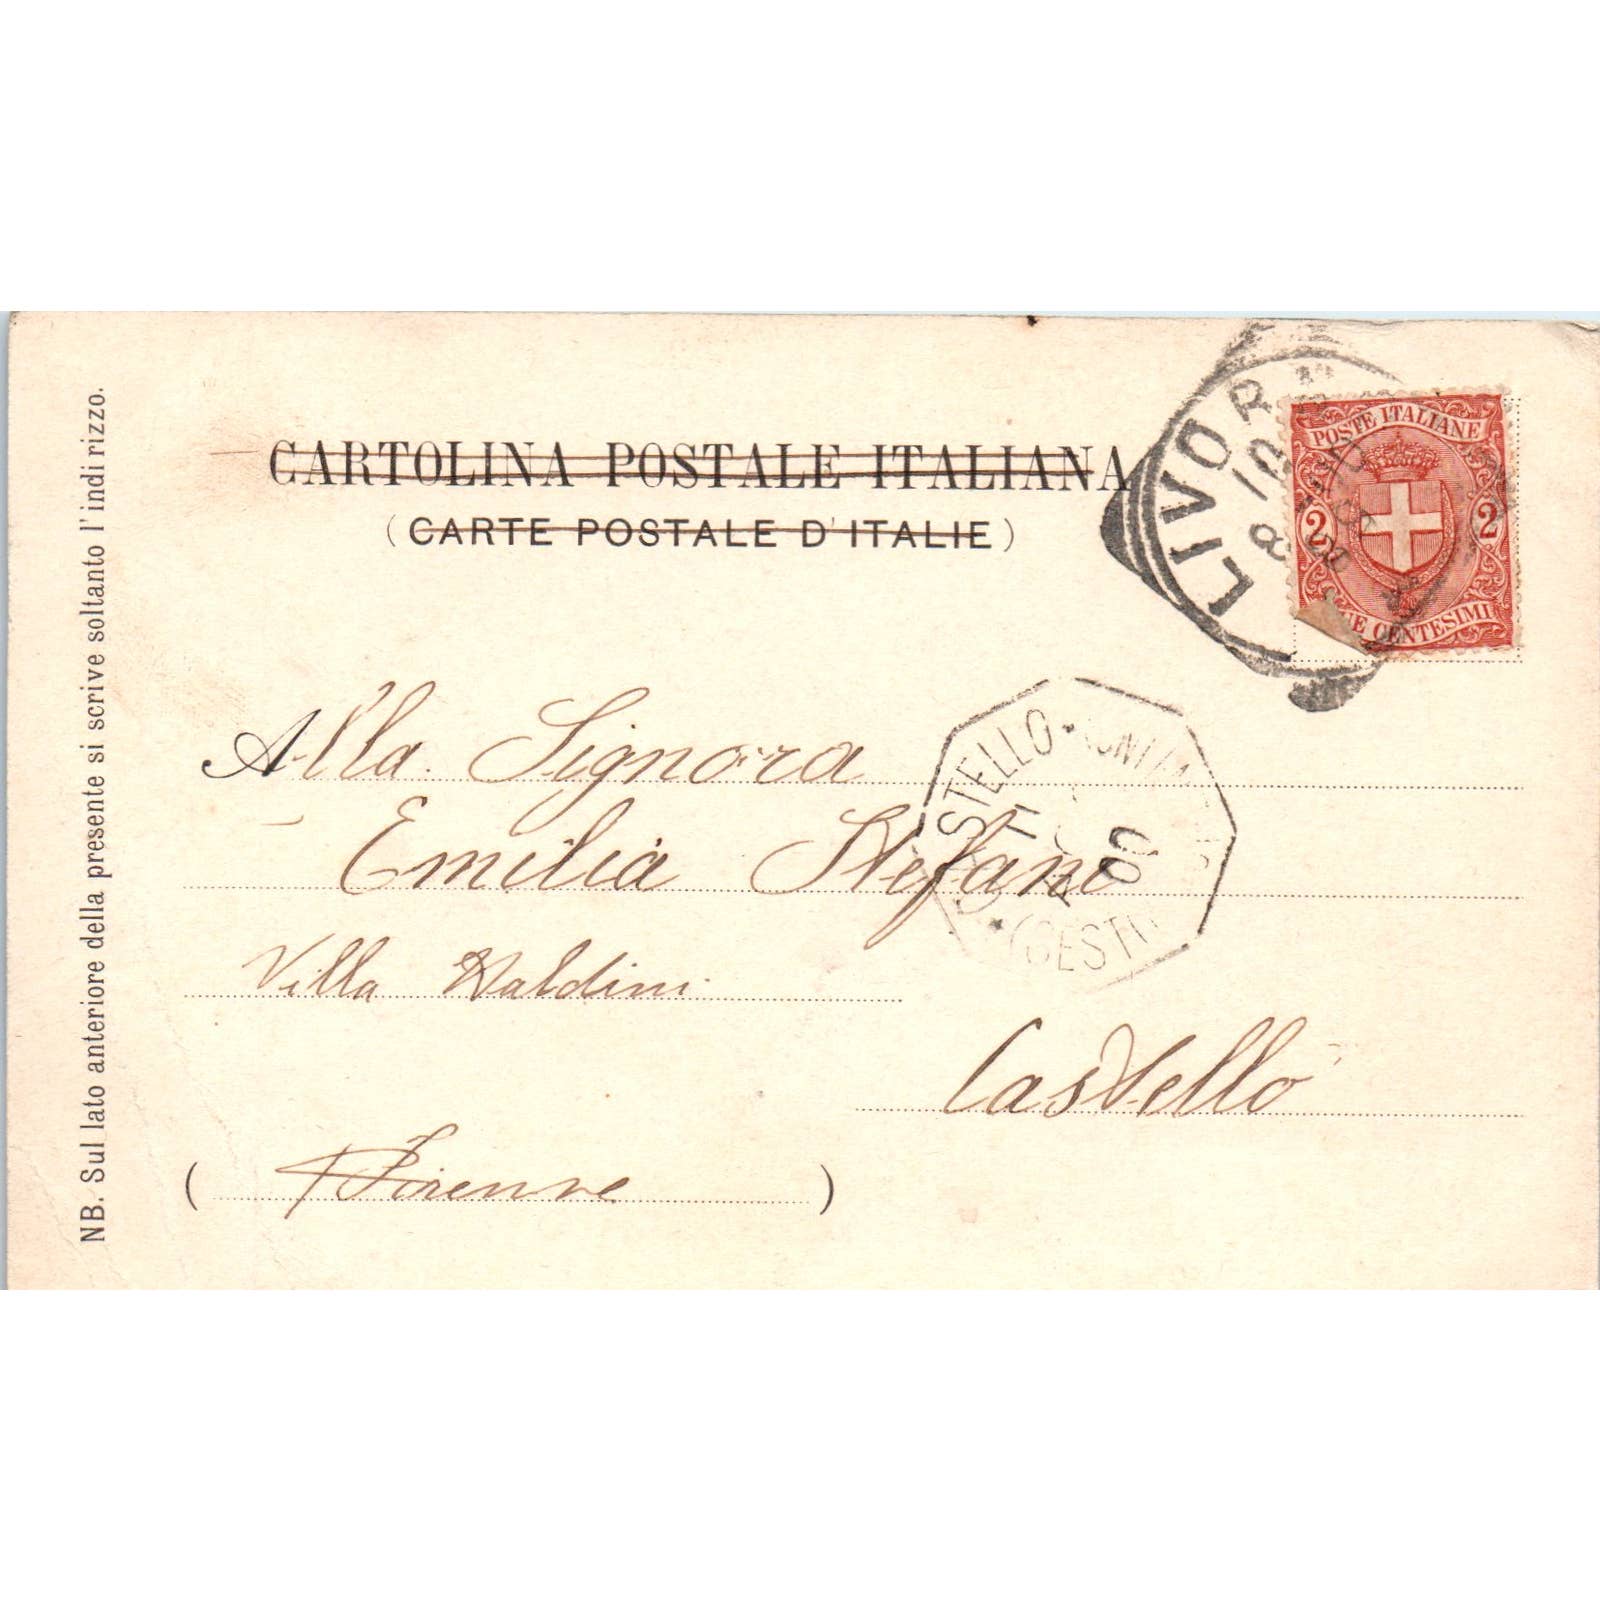 NB. Sul lato anteriore della presente si scrive soltanto l'indirizzo.
CARTOLINA POSTALE ITALIANA
(CARTE POSTALE D'ITALIE)
LIVOR
10
8
POSTE ITALIANE
2 2
UE CENTESIMI
Alla Signora
STELLO
11
00
Emilia Stefani
(GESTI
Villa Waldini
Castello
(Firenze)